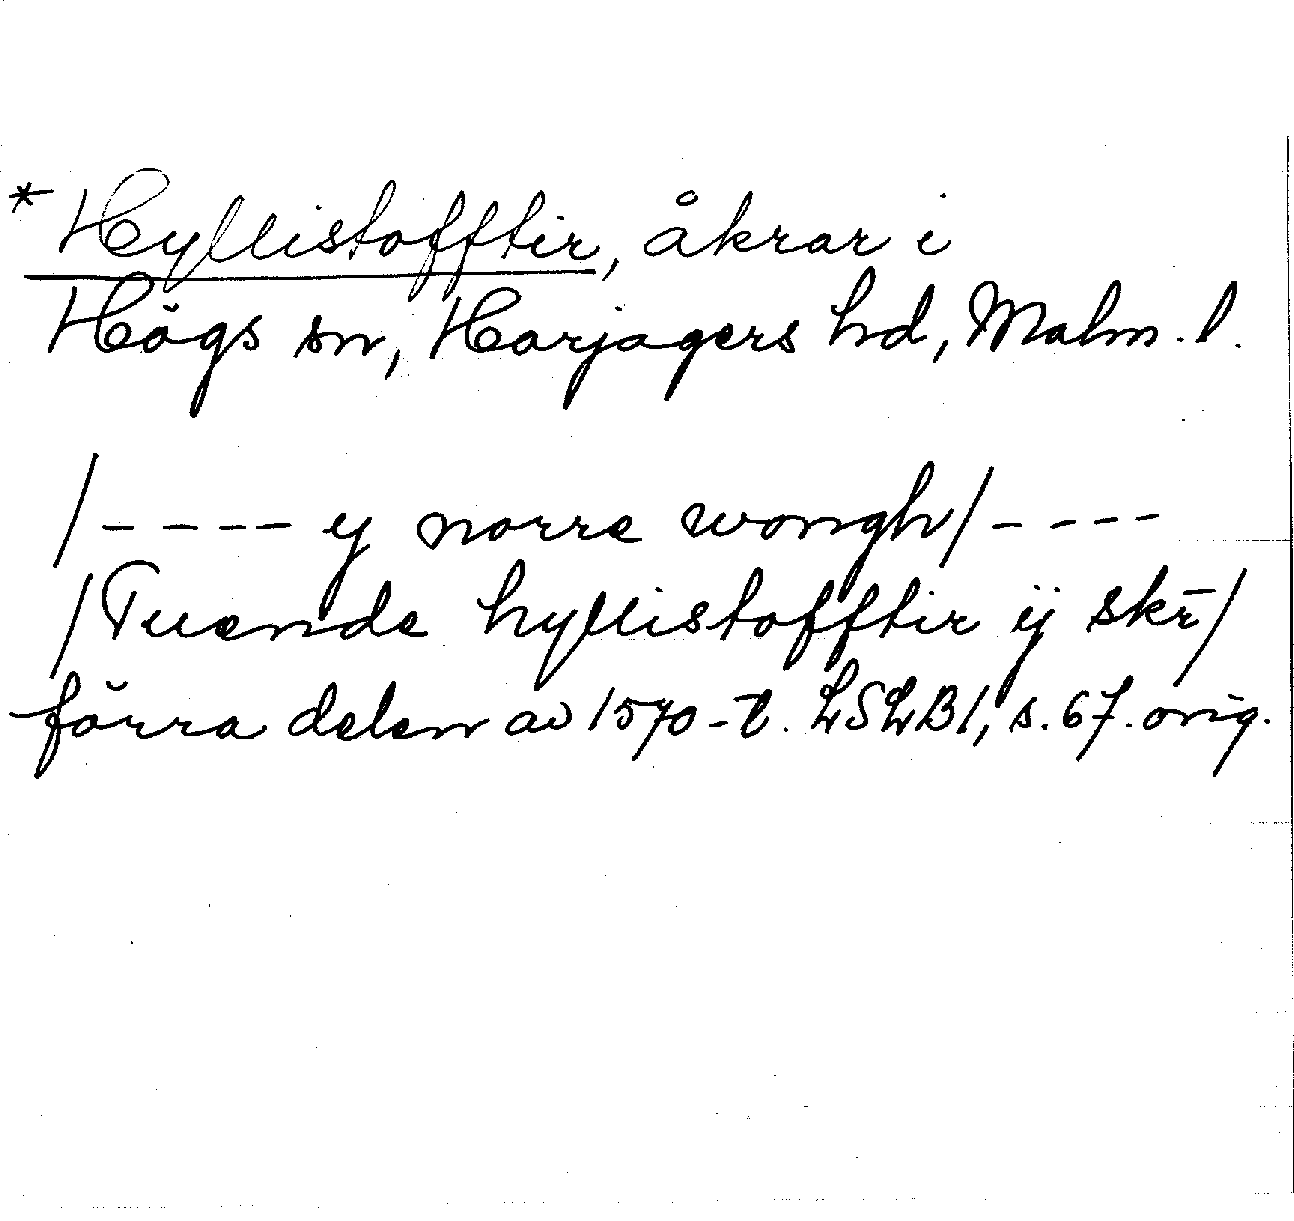 *Hyllistofftir, åkrar i
Högs sn, Harjagers hd, Malm. l.
/---- ij norre wongh/----
/Tuænde hyllistofftir ij skr̄/
förra delen av 1570-t. LSLB1, s. 67. orig.